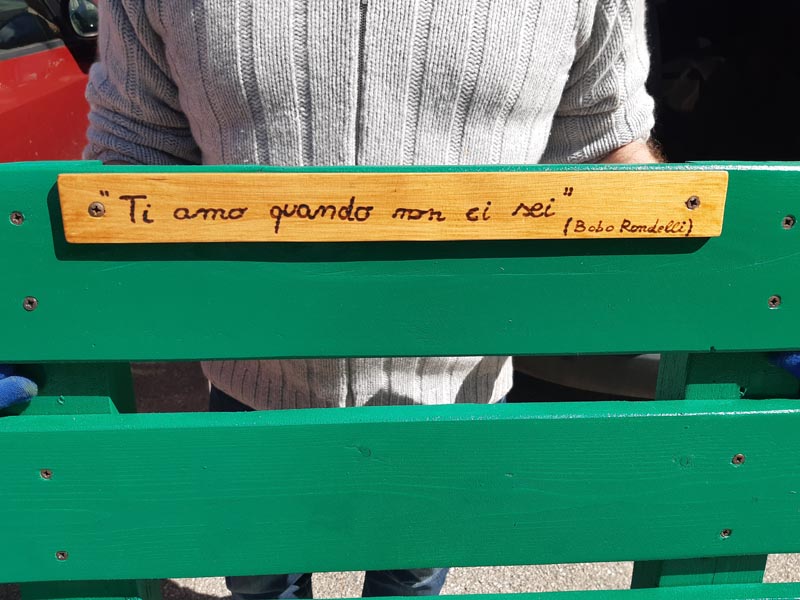 "Ti amo quando non ci sei"
(Bobo Rondelli)